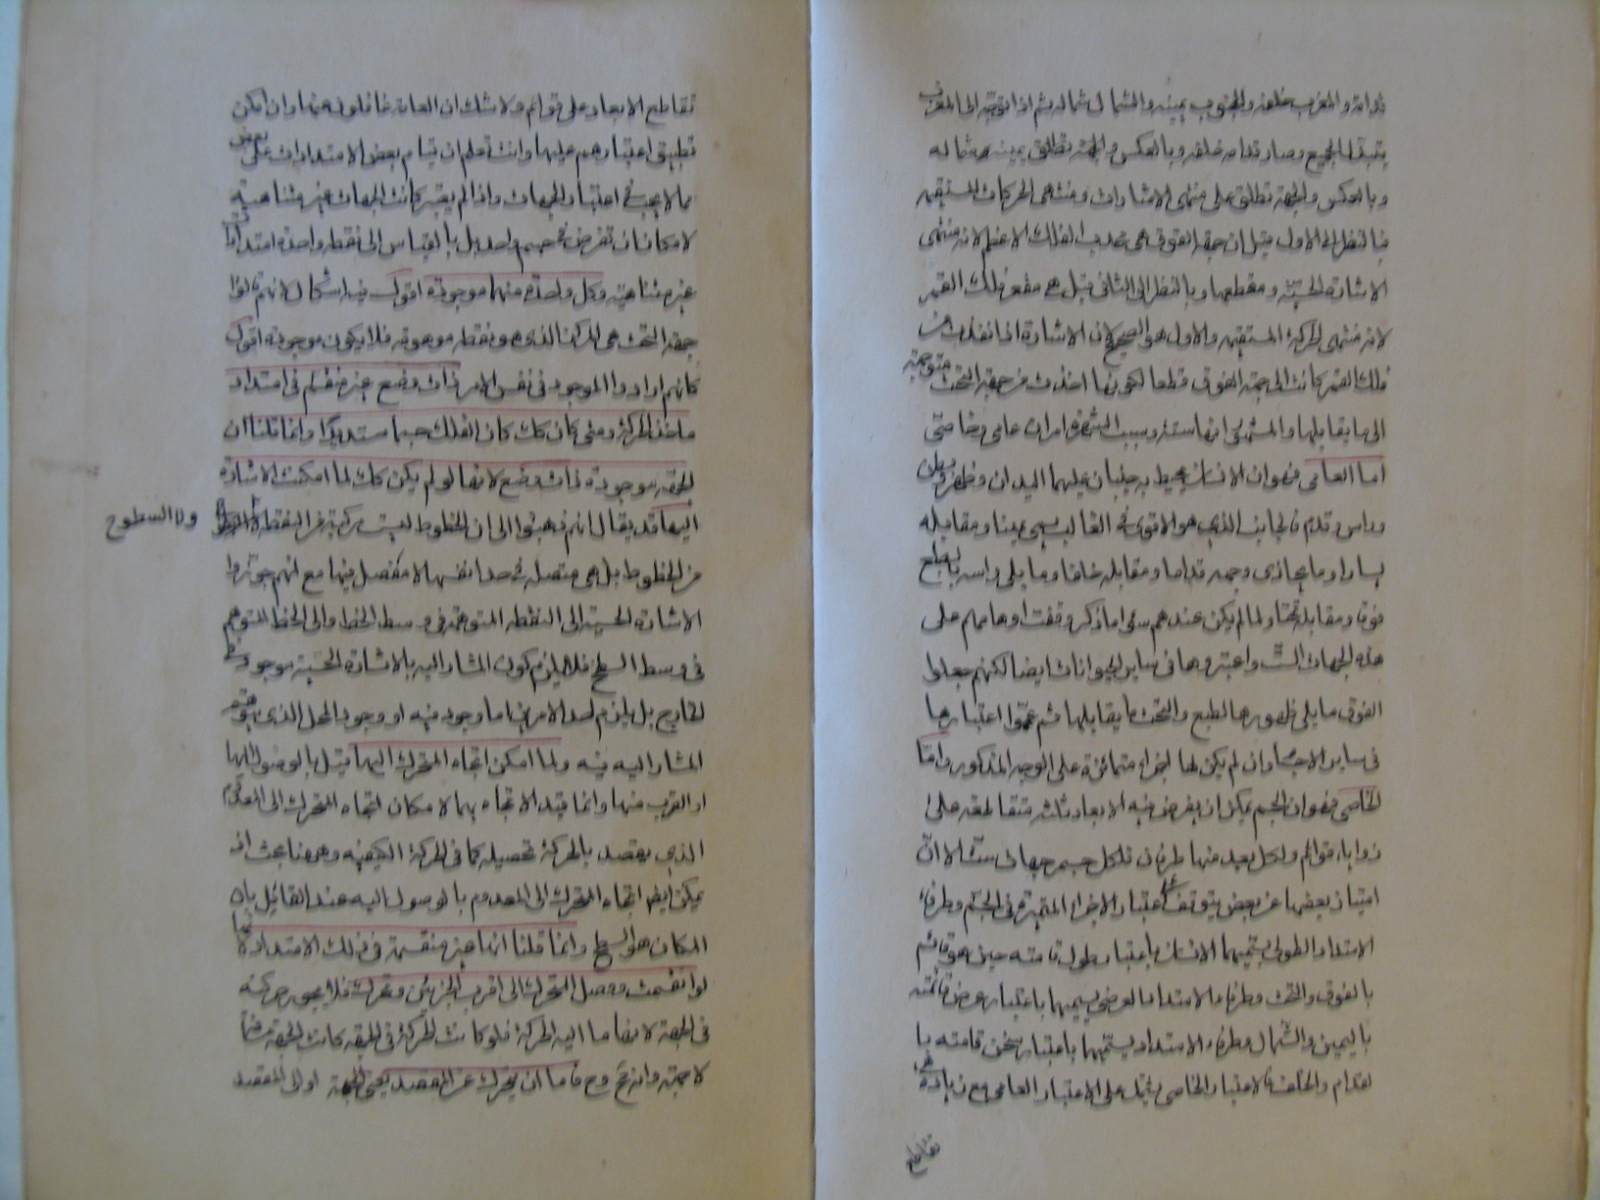 قدامه والمغرب خلفه والجنوب يمينه والشمال شماله ثم اذا توجه الى المغرب
يتبدل الجميع وصار قدامه خلفه وبالعكس والجهة تطلق يمينه شماله
وبالعكس والجهة تطلق على منتهى الاشارات ومنتهى الحركات المستقيمه
فبالنظر الى الاول قيل ان جهة الفوق هى محدب الفلك الاعظم لانه منتهى
الاشارة الحسيّة ومقطعها وبالنظر الى الثانى قيل هى مقعر فلك القمر
لانه منتهى الحركة المستقيمه والاول هو الصحيح لان الاشارة اذا نفذت من
فلك القمر كانت الى جهة الفوق قطعا لكونها اخذت من جهة التحت متوجهة
الى ما يقابلها والمشهور انها ستة وسبب الشهرة امران عامى وخاصى
اما العامى فهو ان الانسان يحيط به جنبان عليهما اليدان وظهر وبطن
وراس وقدم فالجانب الذى هو الاقوى فى الغالب يسمى يمينا ومقابله
يسارا وما يحاذى وجهه قداما ومقابله خلفا وما يلى راسه بالطبع
فوقا ومقابله تحتا ولما لم يكن عندهم سوى ما ذكر وقفت اوهامهم على
هذه الجهات الستّ واعتبروها فى ساير الحيوانات ايضا لكنهم جعلوا
الفوق ما يلى ظهورها بالطبع والتحت ما يقابلها ثم عمّوا اعتبارها
فى ساير الاجسام وان لم يكن لها اجزاء متمايزة على الوجه المذكور وامّا
الخاصى فهو ان الجسم يمكن ان يفرض فيه الابعاد ثلثه متقاطعه على
زوايا قوائم ولكل بعد منها طرفان فلكل جسم جهات ستّ الا انّ
امتياز بعضها عن بعض يتوقف على اعتبار الاجزاء المتميزة فى الجسم وطرفا
الامتداد الطولى يسميهما الانسان باعتبار طول قامته حين هو قائم
بالفوق والتحت وطرفا الامتداد العرضى يسميهما باعتبار عرض قامته
باليمين والشمال وطرفا الامتداد يسميهما باعتبار ثخن قامته با
لقدام والخلف فالاعتبار الخاصى يشتمل على الاعتبار العامى مع زيادة هى
تقاطع
تقاطع الابعاد على قوائم ولا شك ان العامة غافلون عنها وان امكن
تطبيق اعتبارهم عليها وانت تعلم ان قيام بعض الامتدادات على بعض
مما لا يجب فى اعتبار الجهات واذا لم يعتبر كانت الجهات غير متناهية
لامكان ان تفرض فى جسم واحد بل بالقياس الى نقطه واحدة امتدادات
غير متناهية وكل واحدة منها موجودة اقول فيه اشكال لانهم قالوا
جهة التحت هى المركز الذى هو نقطه موهومة فلا يكون موجودة اقول
كانهم ارادوا الموجود فى نفس الامر ذات وضع غير منقسم فى امتداد
ماخذ الحركة ومتى كان كك كان الفلك جسما مستديرا وانما قلنا ان
الجهة موجودة ذات وضع لانها لو لم يكن كك لما امكنت الاشارة
اليها قد يقال انهم ذهبوا الى ان الخطوط ليست مركبة من النقطه
ولا السطوح
من الخطوط بل هى متصله فى حد انفسها لا مفصل فيها مع انهم جوزوا
الاشارة الحسية الى النقطه المتوهمة فى وسط الخط والى الخط المتوهم
فى وسط السطح فلا يلزم كون المشار اليه بالاشارة الحسية موجودا فى
الخارج بل يلزم احد الامرين اما وجوده فيه او وجود المحل الذى يتوهم
المشار اليه فيه ولما امكن اتجاه المتحرك اليها قيل بالوصول اليها
او القرب منها وانما قيد الاتجاه بهما لامكان اتجاه المتحرك الى المعدوم
الذى يقصد بالحركة تحصيله كما فى الحركة الكيفيه وههنا بحث اذ
يمكن ايضا اتجاه المتحرك الى المعدوم بالوصول اليه عند القائل بان
المكان هو السطح وانما قلنا انها غير منقسمة فى ذلك الامتداد لانها
لو انقسمت ووصل المتحرك الى اقرب الجزئين وتحرك فلا يجوز حركته
فى الجهة لانها ما اليه الحركة فلو كانت الحركة فى الجهة كانت الجهة مسافة
لا جهة وح فاما ان يتحرك عن المقصد يعنى الجهة او الى المقصد